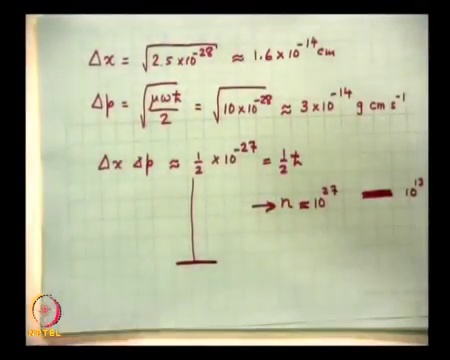 Δx = √2.5×10⁻²⁸ ≈ 1.6×10⁻¹⁴ cm
Δp = √(μωħ/2) = √10×10⁻²⁸ ≈ 3×10⁻¹⁴ g cm s⁻¹
Δx Δp ≈ ½ × 10⁻²⁷ = ½ ħ
→ n ≈ 10²⁷ 10¹³
NPTEL